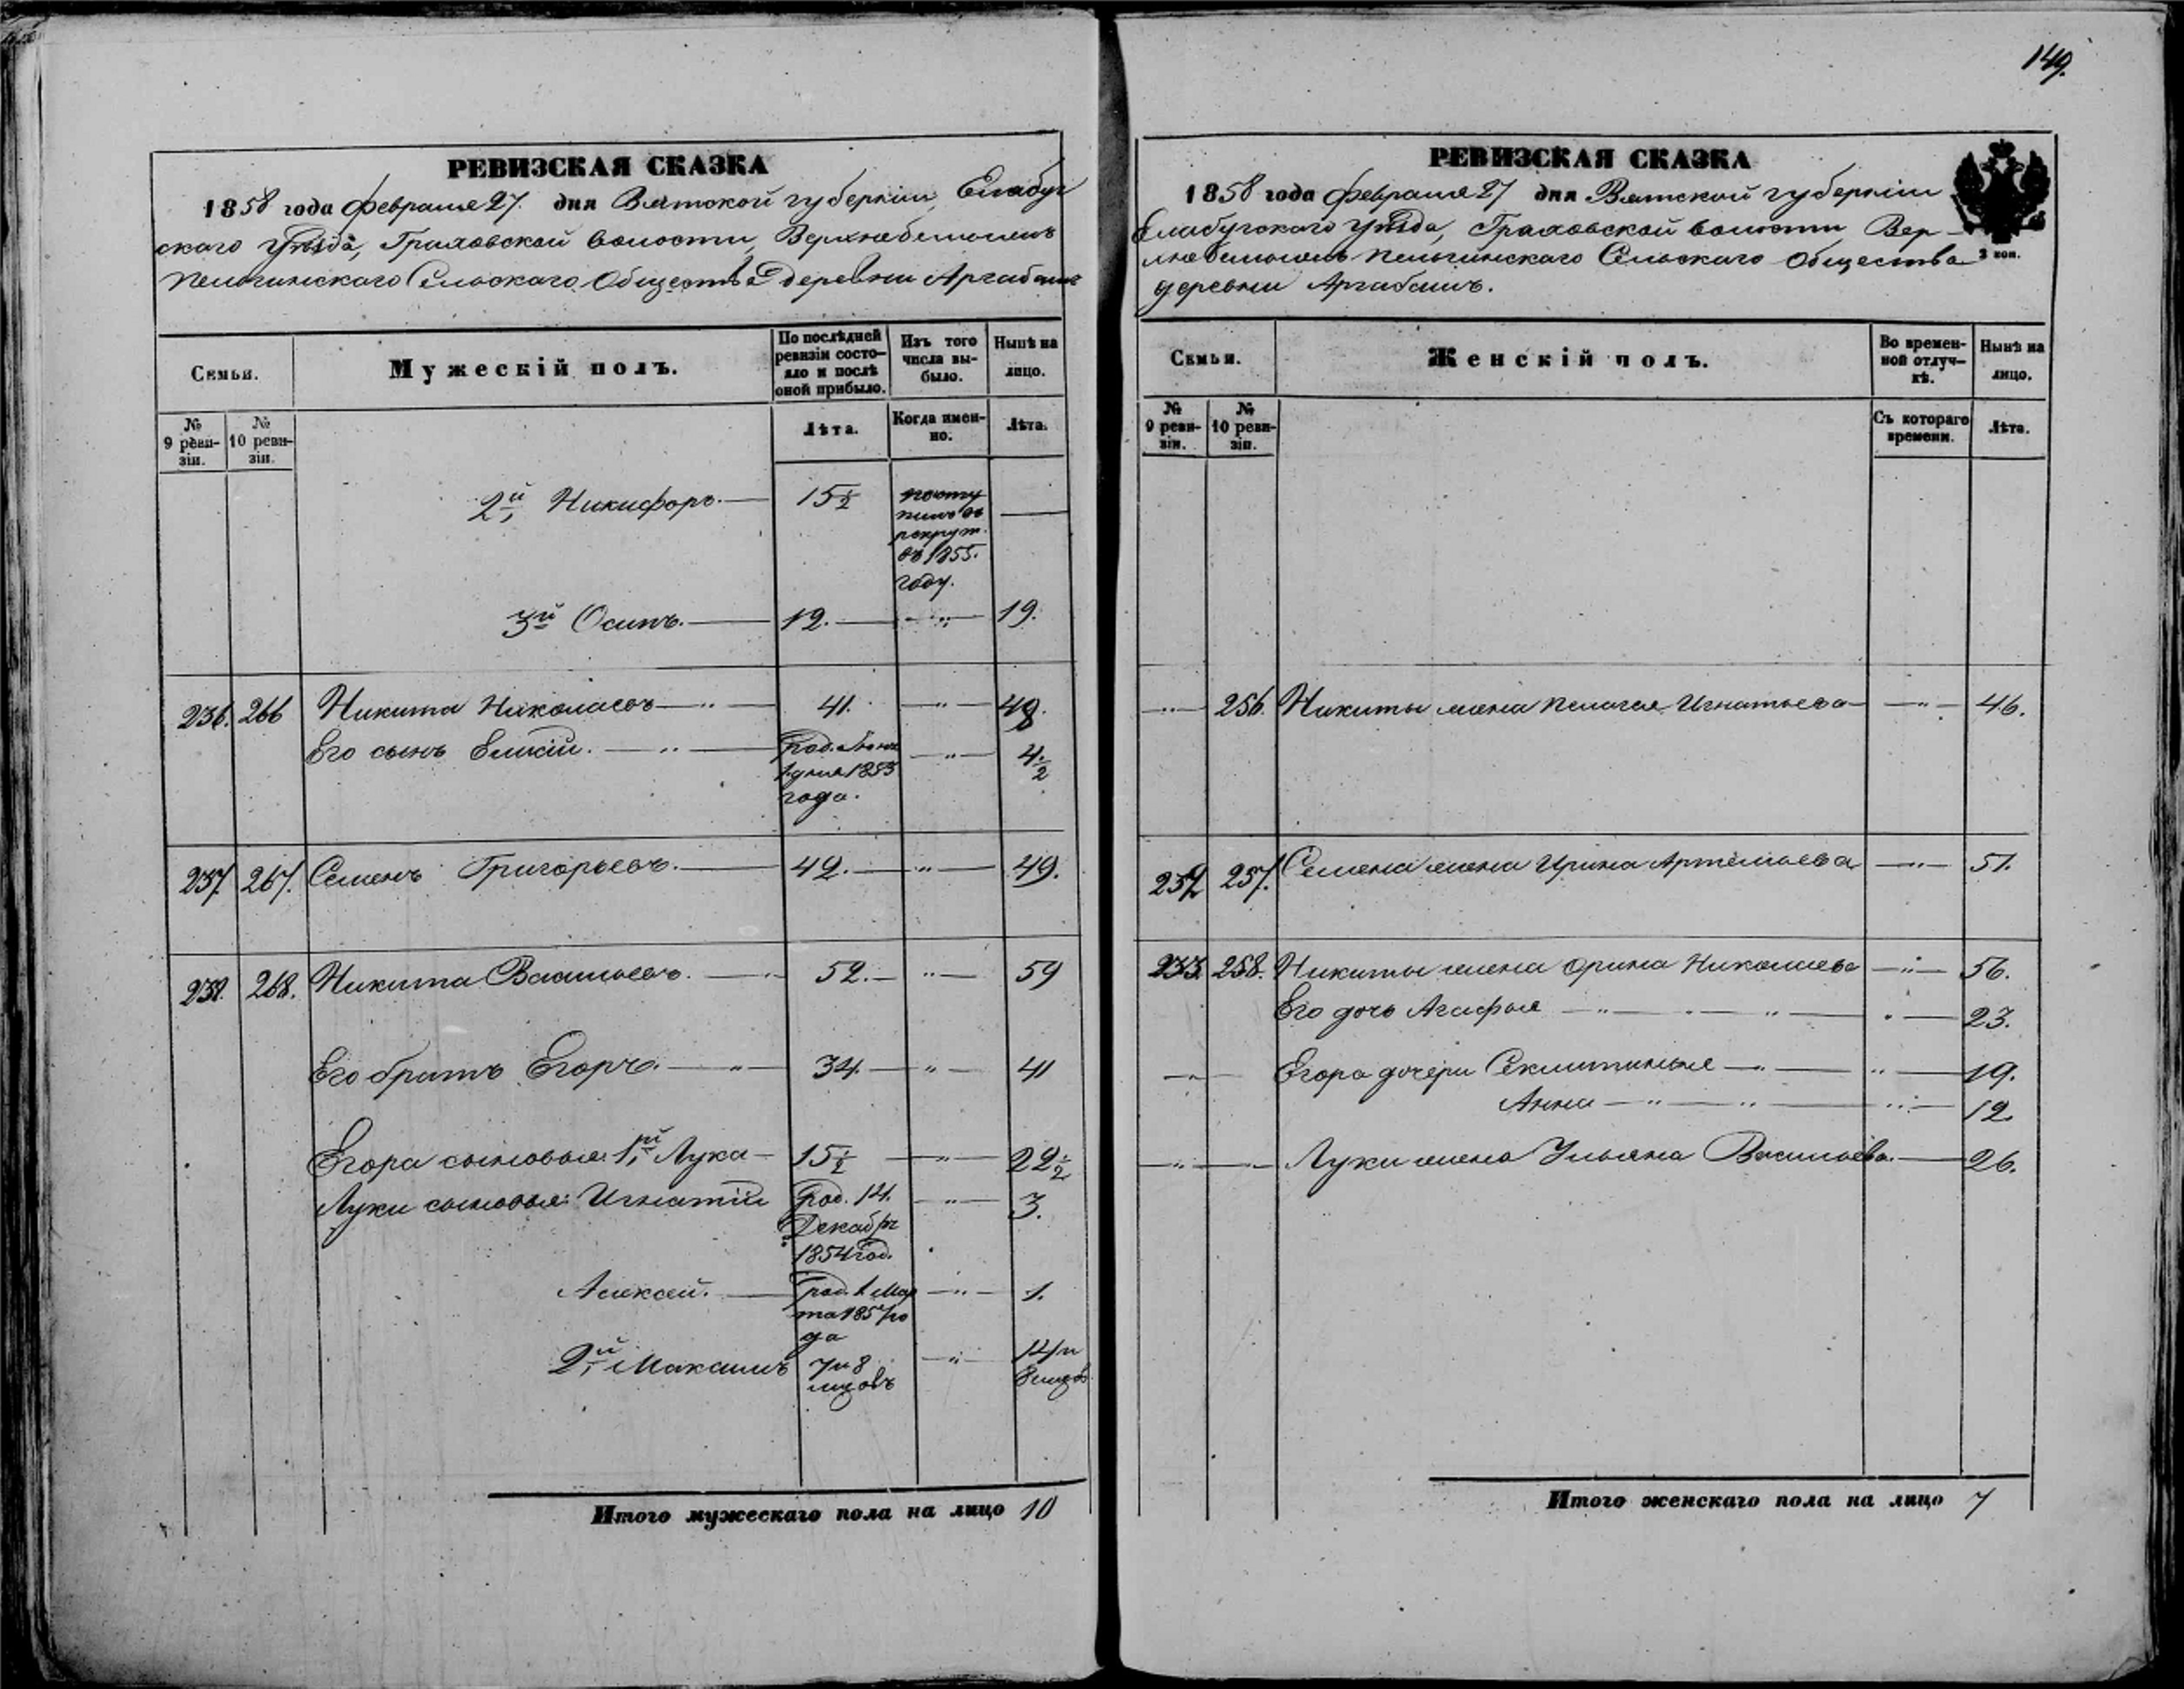 149.
РЕВИЗСКАЯ СКАЗКА
1858 года Февраля 27. дня Вятской губерніи, Елабуг
скаго Уѣзда, Граховской волости, Верхнебемышъ
Пельгинскаго Сельскаго Общества деревни Аргабашъ
Семьи.
Мужескій полъ.
По послѣдней ревизіи состо-
яло и послѣ оной прибыло.
Изъ того числа вы-
было.
Нынѣ на лицо.
№ 9 реви-
зіи.
№ 10 реви-
зіи.
Лѣта.
Когда имен-
но.
Лѣта.
2й, Никифоръ. — 15½ посту
пилъ въ
рекрут.
въ 1855.
году.
3й Осипъ. — 12. — " — 19.
236. 266 Никита Николаевъ — " — 41. — " — 48.
Его сынъ — " — род. Іюня — " — 4½
1 дня 1853
года.
237. 267. Семенъ Григорьевъ. — 42. — " — 49.
268. Никита Васильевъ. — 52. — " — 59
Его братъ Егоръ. — " — 34. — " — 41
Егора сыновья: 1й, Лука — 15½ — " — 22½
Луки сыновья: Игнатій род. 14. — " — 3.
Декабря
1854 год.
Алексей. — род. 1 Мар — " — 1.
та 1857 го
да
2й, Максимъ 7 и 8 — " — 14 и
мцовъ 8 мцов.
Итого мужескаго пола на лицо 10
РЕВИЗСКАЯ СКАЗКА
1858 года Февраля 27 дня Вятской губерніи
Елабугскаго Уѣзда, Граховской волости Вер-
хнебемышъ Пельгинскаго Сельскаго Общества
3 коп.
деревни Аргабашъ.
Семьи.
Женскій полъ.
Во времен-
ной отлуч-
кѣ.
Нынѣ на лицо.
№ 9 реви-
зіи.
№ 10 реви-
зіи.
Съ котораго времени.
Лѣта.
— " — 256. Никиты жена Пелагея Игнатьева — " — 46.
257. Семена жена Ирина Артемьева — " — 51.
258. Никиты жена Орина Николаева — " — 56.
Его дочь Агафья — " — " — 23.
— " — Егора дочери Секлитинья — " — " — 19.
Анна — " — " — " — 12.
— " — Луки жена Ульяна Васильева. — 26.
Итого женскаго пола на лицо 7